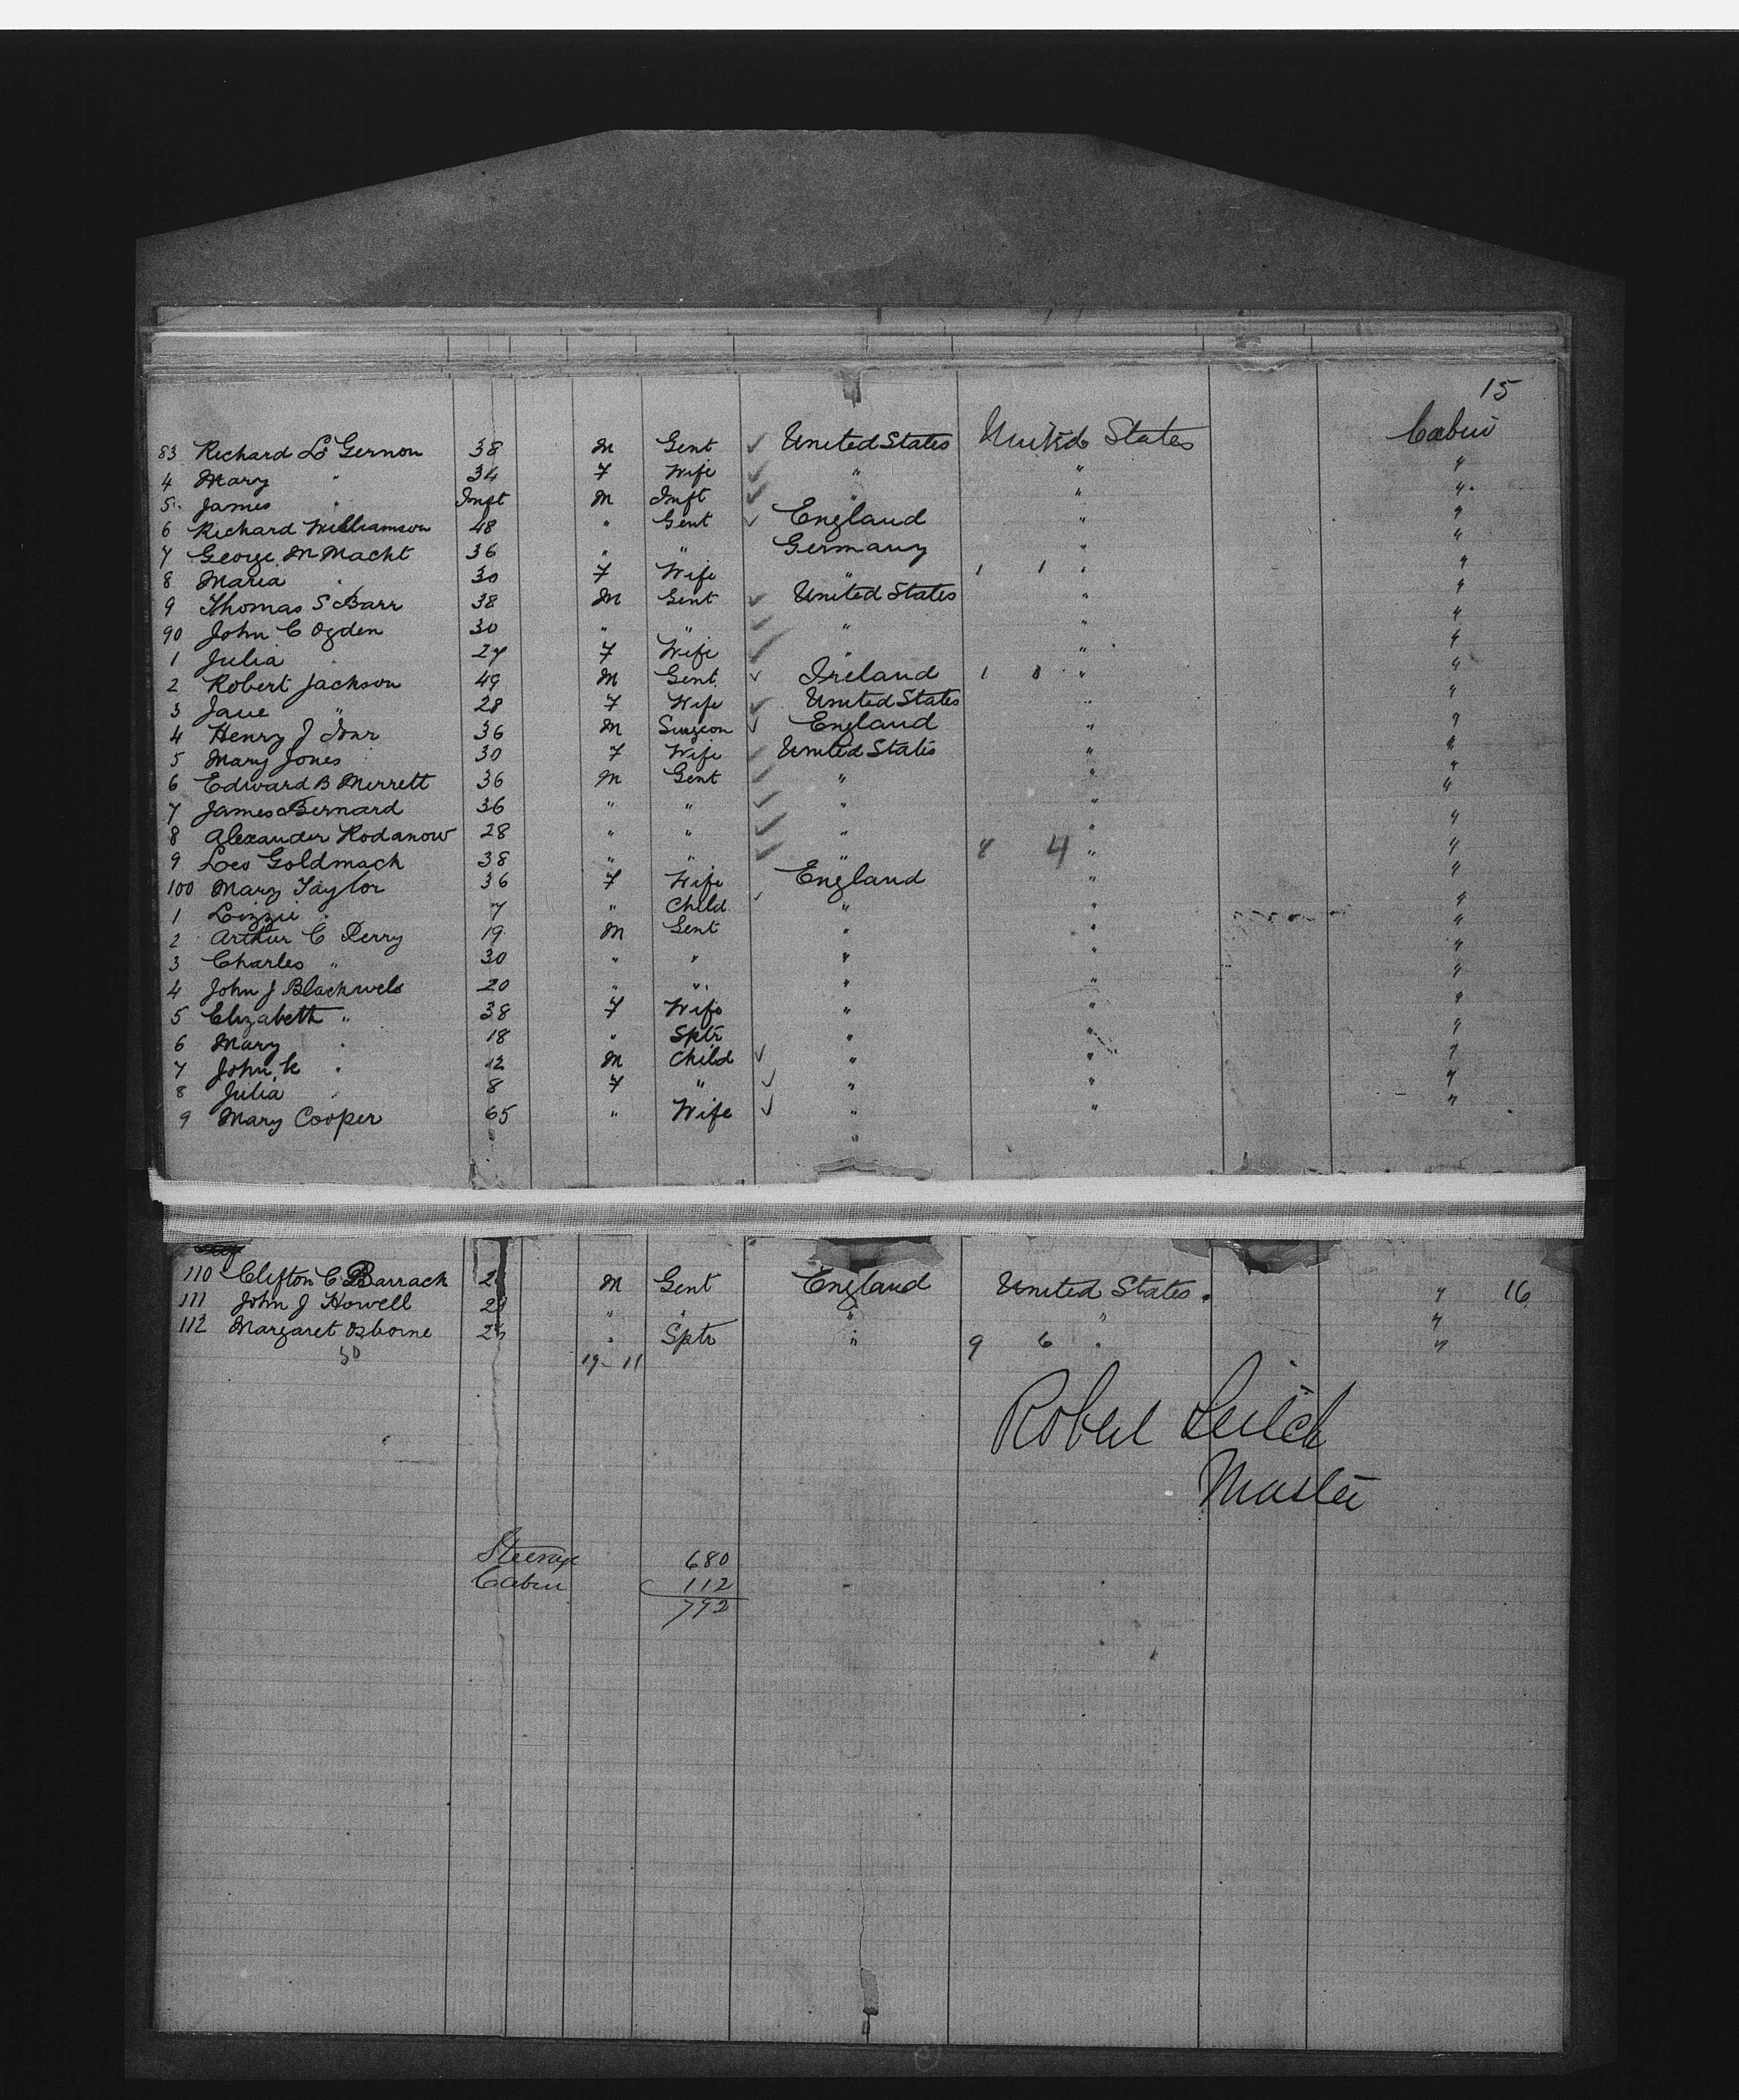 15
83 Richard L Gernon 38 M Gent ✓ United States United States Cabin
4 Mary " 34 F Wife ✓ " " "
5 James " Inft M Inft ✓ " " "
6 Richard Williamson 48 " Gent ✓ England " "
7 George M Macht 36 " " Germany " "
8 Maria " 30 F Wife " 1 1 " "
9 Thomas S Barr 38 M Gent ✓ United States " "
90 John C Ogden 30 " " ✓ " " "
1 Julia " 27 F Wife ✓ " " "
2 Robert Jackson 49 M Gent ✓ Ireland 1 0 " "
3 Jane " 28 F Wife ✓ United States " "
4 Henry J 36 M Surgeon ✓ England " "
5 Mary Jones 30 F Wife ✓ United States " "
6 Edward B Merrett 36 M Gent ✓ " " "
7 James Bernard 36 " " ✓ " " "
8 Alexander Rodanow 28 " " ✓ " " "
9 Leo Goldmach 38 " " ✓ " 8 4 " "
100 Mary Taylor 36 F Wife England " "
1 Lizzie " 7 " Child ✓ " " "
2 Arthur C Perry 19 M Gent " " "
3 Charles " 30 " " " " "
4 John J Blackwels 20 " " " " "
5 Elizabeth " 38 F Wife " " "
6 Mary " 18 " Sptr " " "
7 John K " 12 M Child ✓ " " "
8 Julia " 8 F " ✓ " " "
9 Mary Cooper 65 " Wife ✓ " " "
110 Clifton C Barrach M Gent England United States. " 16
111 John J Howell " " " " "
112 Margaret Osborne " Sptr " 9 6 " "
30 19 - 11
Robert Leitch
Master
Steerage 680
Cabin 112
792